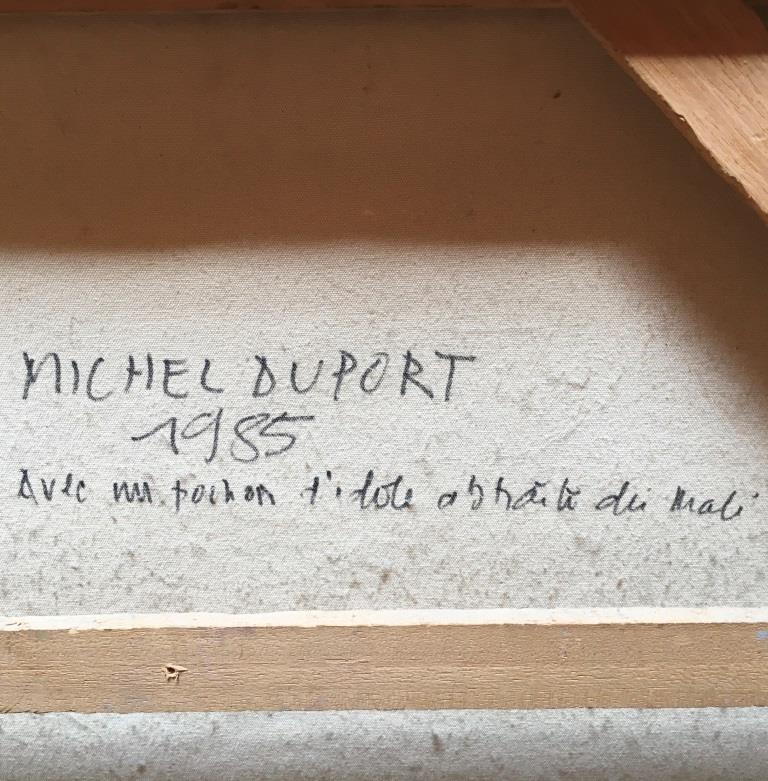 MICHEL DUPORT
1985
Avec un pochon d'idole abstraite du Mali